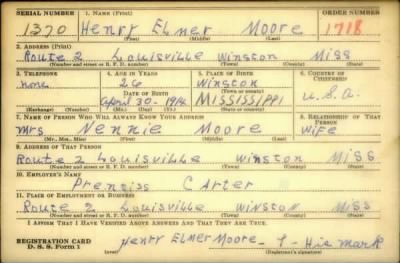 SERIAL NUMBER 1. NAME (Print) ORDER NUMBER
1370 Henry Elmer Moore 1718
(First) (Middle) (Last)
2. ADDRESS (Print)
Route 2 Louisville Winston Miss
(Number and street or R. F. D. number) (Town) (County) (State)
3. TELEPHONE 4. AGE IN YEARS 5. PLACE OF BIRTH 6. COUNTRY OF CITIZENSHIP
none 26 Winston
DATE OF BIRTH (Town or county)
April 30- 1914 Mississippi U.S.A.
(Exchange) (Number) (Mo.) (Day) (Yr.) (State or country)
7. NAME OF PERSON WHO WILL ALWAYS KNOW YOUR ADDRESS 8. RELATIONSHIP OF THAT PERSON
Mrs Nennie Moore Wife
(Mr., Mrs., Miss) (First) (Middle) (Last)
9. ADDRESS OF THAT PERSON
Route 2 Louisville Winston Miss
(Number and street or R. F. D. number) (Town) (County) (State)
10. EMPLOYER'S NAME
Prentiss Carter
11. PLACE OF EMPLOYMENT OR BUSINESS
Route 2 Louisville Winston Miss
(Number and street or R. F. D. number) (Town) (County) (State)
I AFFIRM THAT I HAVE VERIFIED ABOVE ANSWERS AND THAT THEY ARE TRUE.
REGISTRATION CARD Henry Elmer Moore - His mark
D. S. S. Form 1 (Registrant's signature)